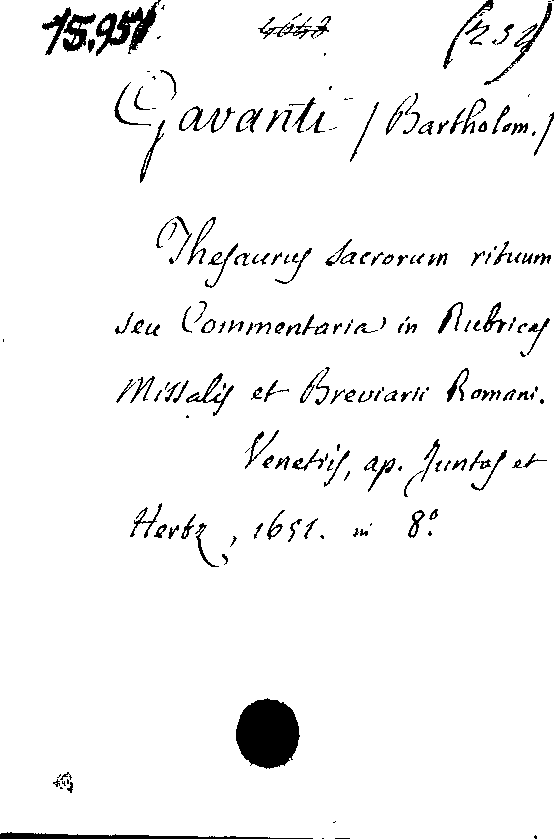 15.951 4648 (232)
Gavanti /Bartholom./
Thesaurus sacrorum rituum
seu Commentaria in Rubricas
Missalis et Breviarii Romani.
Venetiis, ap. Juntas et
Hertz, 1651. in 8º.